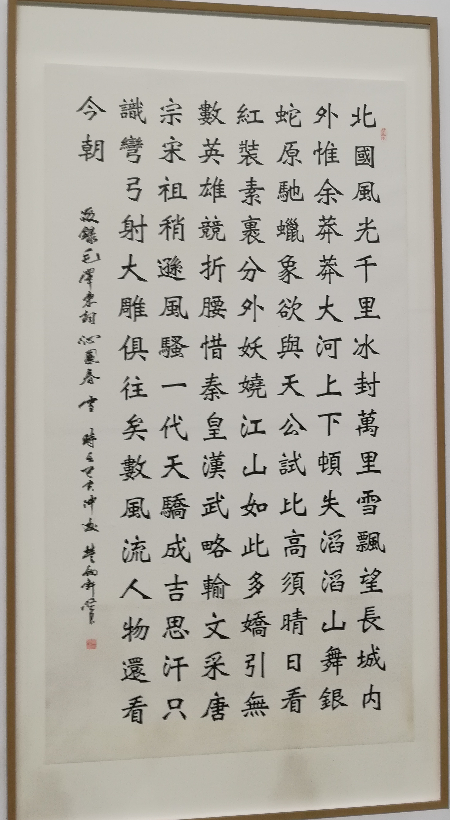 北國風光千里冰封萬里雪飄望長城内
外惟余莽莽大河上下頓失滔滔山舞銀
蛇原馳蠟象欲與天公試比高須晴日看
紅裝素裹分外妖嬈江山如此多嬌引無
數英雄競折腰惜秦皇漢武略輸文采唐
宗宋祖稍遜風騷一代天驕成吉思汗只
識彎弓射大雕俱往矣數風流人物還看
今朝
敬錄毛澤東詞沁園春雪